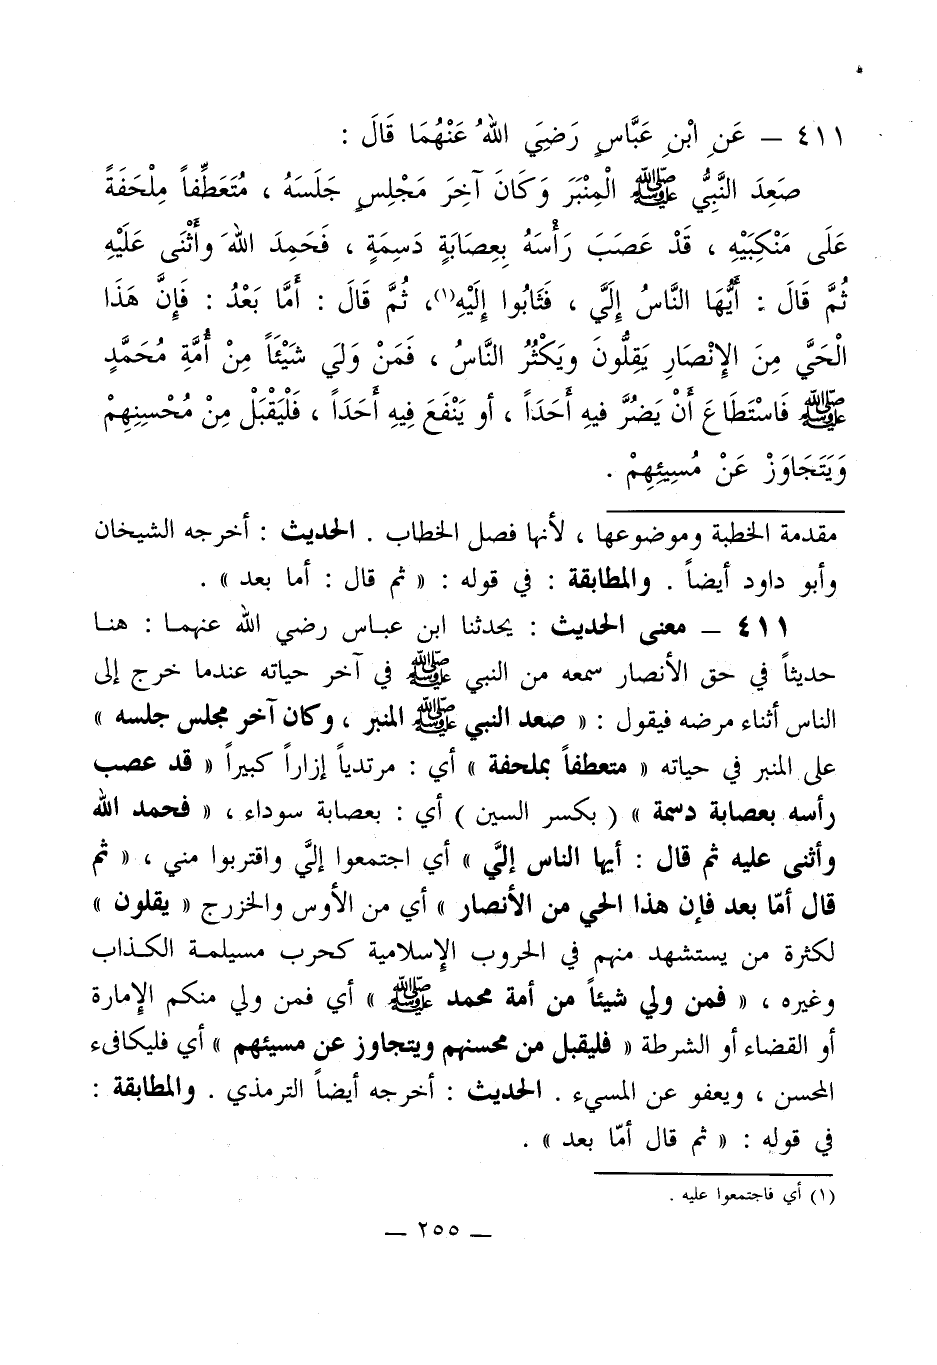 ٤١١ – عَنِ ابْنِ عَبَّاسٍ رَضِيَ اللهُ عَنْهُمَا قَالَ :
صَعِدَ النَّبِيُّ ﷺ الْمِنْبَرَ وَكَانَ آخِرَ مَجْلِسٍ جَلَسَهُ ، مُتَعَطِّفاً مِلْحَفَةً
عَلَى مَنْكِبَيْهِ ، قَدْ عَصَبَ رَأْسَهُ بِعِصَابَةٍ دَسِمَةٍ ، فَحَمِدَ اللهَ وأَثْنَى عَلَيْهِ
ثُمَّ قَالَ : أَيُّهَا النَّاسُ إِلَيَّ ، فَثَابُوا إِلَيْهِ(١)، ثُمَّ قَالَ : أَمَّا بَعْدُ : فَإِنَّ هَذَا
الْحَيَّ مِنَ الإِنْصَارِ يَقِلُّونَ وَيَكْثُرُ النَّاسُ ، فَمَنْ وَلِيَ شَيْئَاً مِنْ أُمَّةِ مُحَمَّدٍ
ﷺ فَاسْتَطَاعَ أَنْ يَضُرَّ فيهِ أَحَدَاً ، أو يَنْفَعَ فِيهِ أَحَدَاً ، فَلْيَقْبَلْ مِنْ مُحْسِنِهِمْ
وَيَتَجَاوَزْ عَنْ مُسِيئِهِمْ .
مقدمة الخطبة وموضوعها ، لأنها فصل الخطاب . الحديث : أخرجه الشيخان
وأبو داود أيضاً . والمطابقة : في قوله : « ثم قال : أما بعد » .
٤١١ – معنى الحديث : يحدثنا ابن عباس رضي الله عنهما : هنا
حديثاً في حق الأنصار سمعه من النبي ﷺ في آخر حياته عندما خرج إلى
الناس أثناء مرضه فيقول : « صعد النبي ﷺ المنبر ، وكان آخر مجلس جلسه »
على المنبر في حياته « متعطفاً بملحفة » أي : مرتدياً إزاراً كبيراً « قد عصب
رأسه بعصابة دسمة » ( بكسر السين ) أي : بعصابة سوداء ، « فحمد الله
وأثنى عليه ثم قال : أيها الناس إليَّ » أي اجتمعوا إليَّ واقتربوا مني ، « ثم
قال أمّا بعد فإن هذا الحي من الأنصار » أي من الأوس والخزرج « يقلون »
لكثرة من يستشهد منهم في الحروب الإسلامية كحرب مسيلمة الكذاب
وغيره ، « فمن ولي شيئاً من أمة محمد ﷺ » أي فمن ولي منكم الإمارة
أو القضاء أو الشرطة « فليقبل من محسنهم ويتجاوز عن مسيئهم » أي فليكافىء
المحسن ، ويعفو عن المسيء . الحديث : أخرجه أيضاً الترمذي . والمطابقة :
في قوله : « ثم قال أمّا بعد » .
(١) أي فاجتمعوا عليه .
– ٢٥٥ –